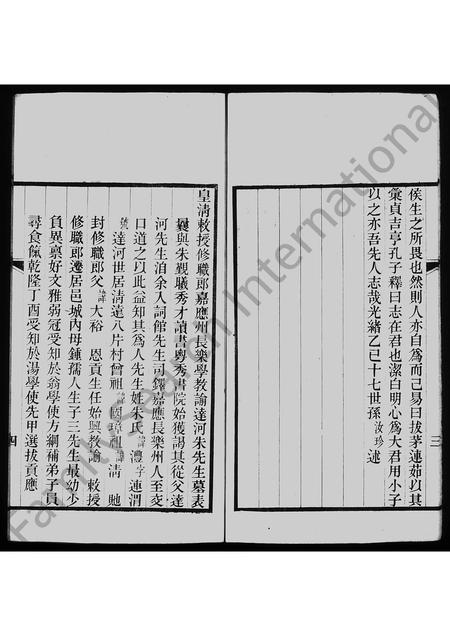 侯生之所畏也然則人亦自為而已易曰拔茅連茹以其
彙貞吉亨孔子釋曰志在君也潔白明心為大君用小子
以之亦吾先人志哉光緒乙巳十七世孫汝珍述
三
皇清敕授修職郎嘉應州長樂學教諭達河朱先生墓表
與朱覲曦秀才讀書粵秀書院始獲謁其從父達
河先生洎余入詞館先生司鐸嘉應長樂州人至京
口道之以此益知其為人先生姓朱氏諱澧字連渭
號達河世居清遠八片村曾祖諱國璋祖諱清 貤
封修職郎父諱大裕 恩貢生任始興教諭 敕授
修職郎遷居邑城內母鍾孺人生子三先生最幼少
負異稟好文雅弱冠受知於翁學使方綱補弟子員
尋食餼乾隆丁酉受知於湯學使先甲選拔貢應
四
FamilySearch International